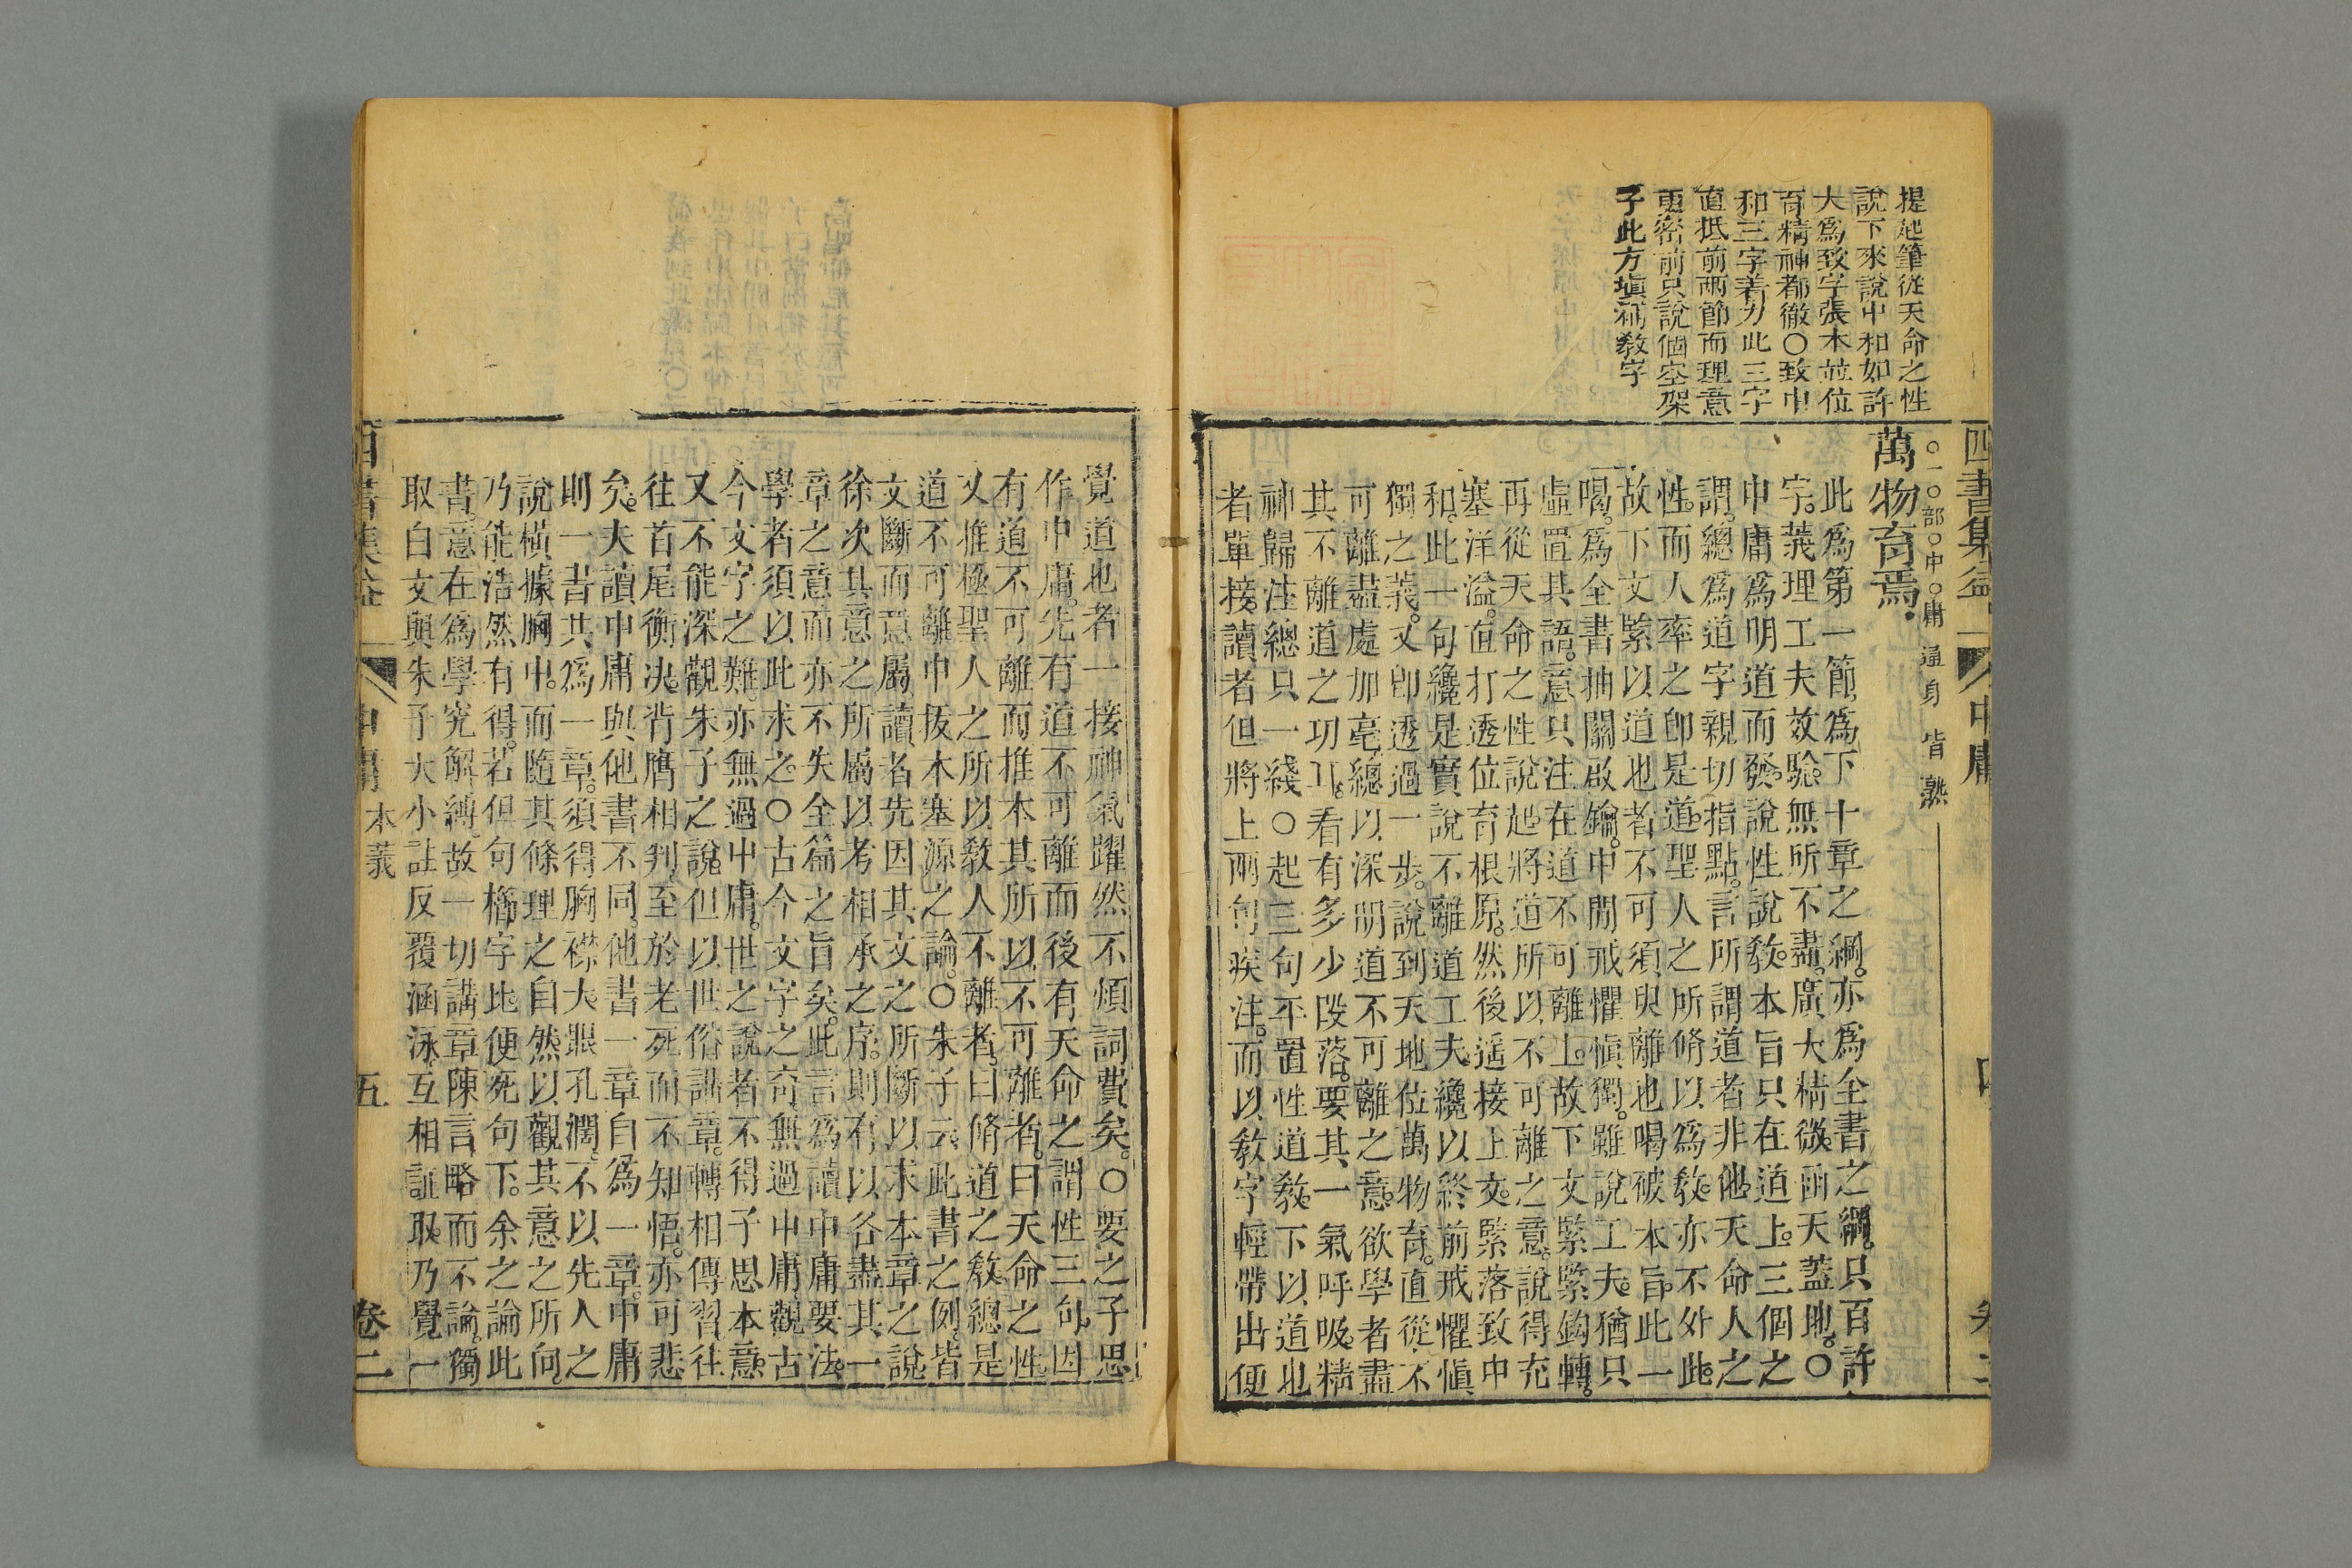 提起筆從天命之性
說下來說中和如許
大爲致字張本並位
育精神都徹○致中
和三字着力此三字
直抵前兩節而理意
更密前只說個空架
子此方塡補敎字
四書集益
中庸
○一○部○中○庸通身皆熟
萬物育焉
此爲第一節爲下十章之綱亦爲全書之綱只百許
字義理工夫效驗無所不盡廣大精微函天蓋地○
中庸爲明道而發說性說敎本旨只在道上三個之
謂總爲道字親切指點言所謂道者非他天命人之
性而人率之卽是道聖人之所脩以爲敎亦不外此
故下文緊以道也者不可須臾離也喝破本旨此一
喝爲全書抽關啟鑰中間戒懼愼獨雖說工夫猶只
虛置其語意只注在道不可離上故下文緊緊鈎轉
再從天命之性說起將道所以不可離之意說得充
塞洋溢直打透位育根原然後遥接上文緊落致中
和此一句纔是實說不離道工夫纔以終前戒懼愼
獨之義又卽透過一步說到天地位萬物育直從不
可離盡處加亳總以深明道不可離之意欲學者盡
其不離道之功耳看有多少段落要其一氣呼吸精
神歸注總只一綫○起三句平置性道敎下以道也
者單接讀者但將上兩句疾注而以敎字輕帶出便
覺道也者一接神氣躍然不煩詞費矣○要之子思
作中庸先有道不可離而後有天命之謂性三句因
有道不可離而推本其所以不可離者曰天命之性
又推極聖人之所以敎人不離者曰脩道之敎總是
道不可離中拔本塞源之論○朱子云此書之例皆
文斷而意屬讀者先因其文之所斷以求本章之說
徐次其意之所屬以考相承之序則有以各盡其一
章之意而亦不失全篇之旨矣此言爲讀中庸要法
學者須以此求之○古今文字之奇無過中庸觀古
今文字之難亦無過中庸世之說者不得子思本意
又不能深觀朱子之說但以世俗講章轉相傳習往
往首尾衡決背膺相判至於老死而不知悟亦可悲
矣夫讀中庸與他書不同他書一章自爲一章中庸
則一書共爲一章須得胸襟大眼孔濶不以先人之
說橫據胸中而隨其條理之自然以觀其意之所向
乃能浩然有得若但句櫛字比便死句下余之論此
書意在爲學究解縛故一切講章陳言略而不論獨
取白文與朱子大小註反覆涵泳互相証取乃覺一
中庸 本義 五 卷二